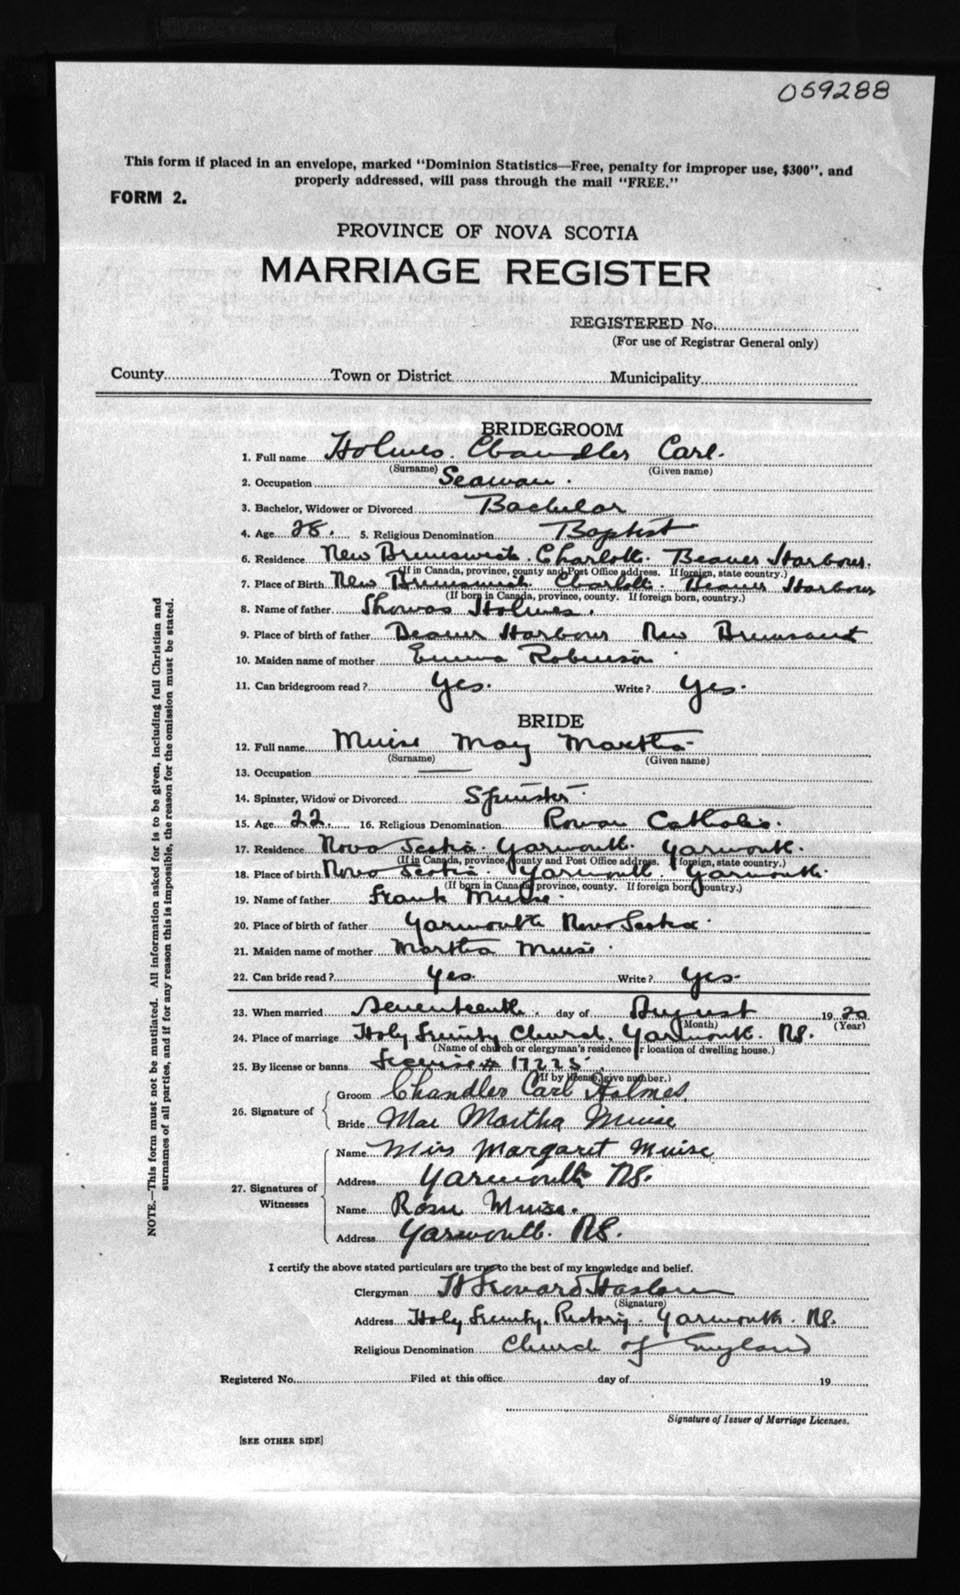 059288
This form if placed in an envelope, marked "Dominion Statistics—Free, penalty for improper use, $300", and
properly addressed, will pass through the mail "FREE."
FORM 2.
PROVINCE OF NOVA SCOTIA
MARRIAGE REGISTER
REGISTERED No.
(For use of Registrar General only)
County Town or District Municipality
BRIDEGROOM
1. Full name Holmes. Chandler Carl.
(Surname) (Given name)
2. Occupation Seaman.
3. Bachelor, Widower or Divorced Bachelor
4. Age 28. 5. Religious Denomination Baptist
6. Residence New Brunswick. Charlotte. Beaver Harbour.
(If in Canada, province, county and Post Office address. If foreign, state country.)
7. Place of Birth New Brunswick Charlotte. Beaver Harbour
(If born in Canada, province, county. If foreign born, country.)
8. Name of father Thomas Holmes.
9. Place of birth of father Beaver Harbour New Brunswick
10. Maiden name of mother Emma Robinson
11. Can bridegroom read? Yes. Write? Yes.
BRIDE
12. Full name Muise May Martha
(Surname) (Given name)
13. Occupation —
14. Spinster, Widow or Divorced Spinster
15. Age 22. 16. Religious Denomination Roman Catholic.
17. Residence Nova Scotia. Yarmouth. Yarmouth.
(If in Canada, province, county and Post Office address. If foreign, state country.)
18. Place of birth Nova Scotia. Yarmouth. Yarmouth.
(If born in Canada province, county. If foreign born country.)
19. Name of father Frank Muise.
20. Place of birth of father Yarmouth Nova Scotia.
21. Maiden name of mother Martha Muise.
22. Can bride read? Yes. Write? Yes.
23. When married Seventeenth. day of August 1920
(Month) (Year)
24. Place of marriage Holy Trinity Church, Yarmouth. NS.
(Name of church or clergyman's residence or location of dwelling house.)
25. By license or banns License # 17225.
(If by license, give number.)
26. Signature of Groom Chandler Carl Holmes.
Bride Mae Martha Muise
27. Signatures of Witnesses Name Miss Margaret Muise
Address Yarmouth NS.
Name Rose Muise.
Address Yarmouth. NS.
I certify the above stated particulars are true to the best of my knowledge and belief.
Clergyman Haslam
(Signature)
Address Holy Trinity. Rectory. Yarmouth. NS.
Religious Denomination Church of England
Registered No. Filed at this office day of 19
Signature of Issuer of Marriage Licenses.
[SEE OTHER SIDE]
NOTE.—This form must not be mutilated. All information asked for is to be given, including full Christian and
surnames of all parties, and if for any reason this is impossible, the reason for the omission must be stated.